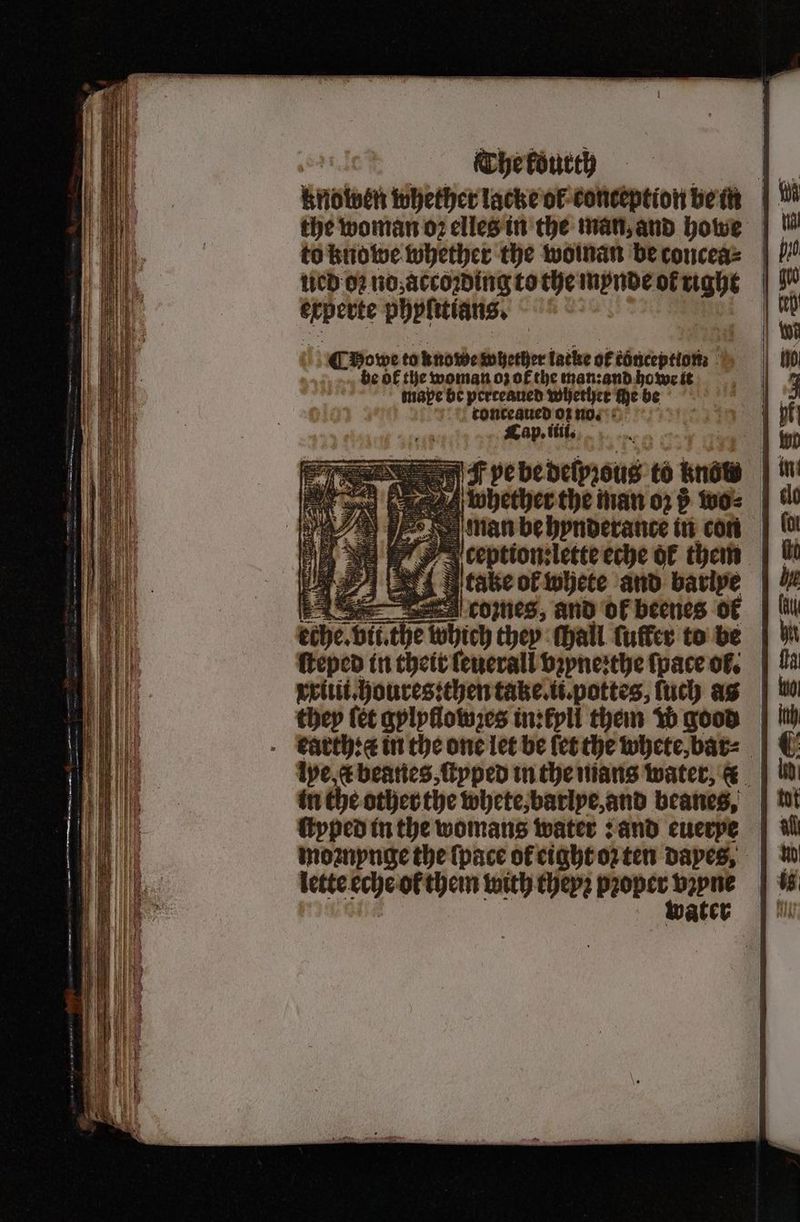 The fourth
knowen whether lacke of conception be in
the woman or elles in the man, and howe
to knowe whether the woman be concea=
ued or no, according to the mynde of right
experte phyſitians.
¶ Howe to knowe whether lacke of conception
be of the woman or of the man: and howe it
maye be perceaued whether ſhe be
conceaued or no.
Cap. iiii.
IF ye be deſyrous to know
whether the man or þͤ wo=
man be hynderance in con
ception: lette eche of them
take of whete and barlye
cornes, and of beenes of
eche. vii. the which they ſhall ſuffer to be
ſteped in their ſeuerall vryne: the ſpace of.
xxiiii. houres: then take. ii. pottes, ſuch as
they ſet gylyflowres in: fyll them wͭ good
earth: & in the one let be ſet the whete, bar=
lye, & beanes, ſtyped in the mans water, &
in the other the whete, barlye, and beanes,
ſtyped in the womans water: and euerye
mornynge the ſpace of eight or ten dayes,
lette eche of them with theyr proper vryne
water